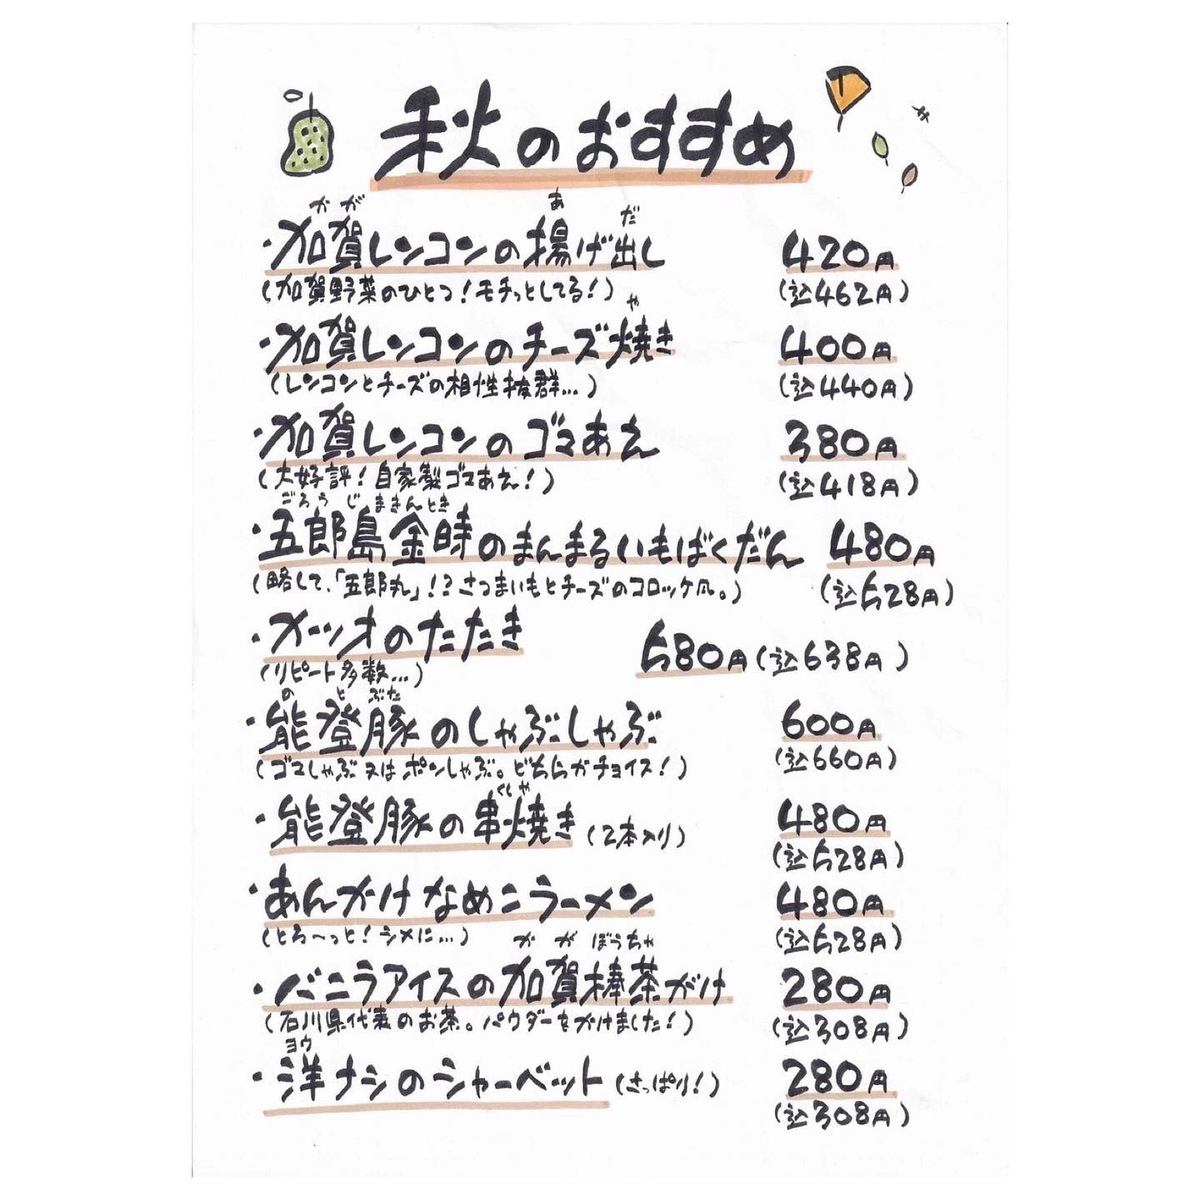 秋のおすすめ
かが あ だ
・加賀レンコンの揚げ出し 420円
(加賀野菜のひとつ!モチっとしてる!) (込462円)
や
・加賀レンコンのチーズ焼き 400円
(レンコンとチーズの相性抜群…) (込440円)
・加賀レンコンのゴマあえ 380円
(大好評!自家製ゴマあえ!) (込418円)
ごろうじ まきんとき
・五郎島金時のまんまるいもばくだん 480円
(略して、「五郎丸」!?さつまいもとチーズのコロッケ風。) (込528円)
・カツオのたたき 580円(込638円)
(リピート多数…)
の と ぶた
・能登豚のしゃぶしゃぶ 600円
(ゴマしゃぶ又はポンしゃぶ。どちらかチョイス!) (込660円)
くしや
・能登豚の串焼き(2本入り) 480円
(込528円)
・あんかけなめこラーメン 480円
(とろ〜っと!シメに…) (込528円)
か が ぼうちゃ
・バニラアイスの加賀棒茶がけ 280円
(石川県代表のお茶。パウダーをかけました!) (込308円)
ヨウ
・洋ナシのシャーベット(さっぱり!) 280円
(込308円)